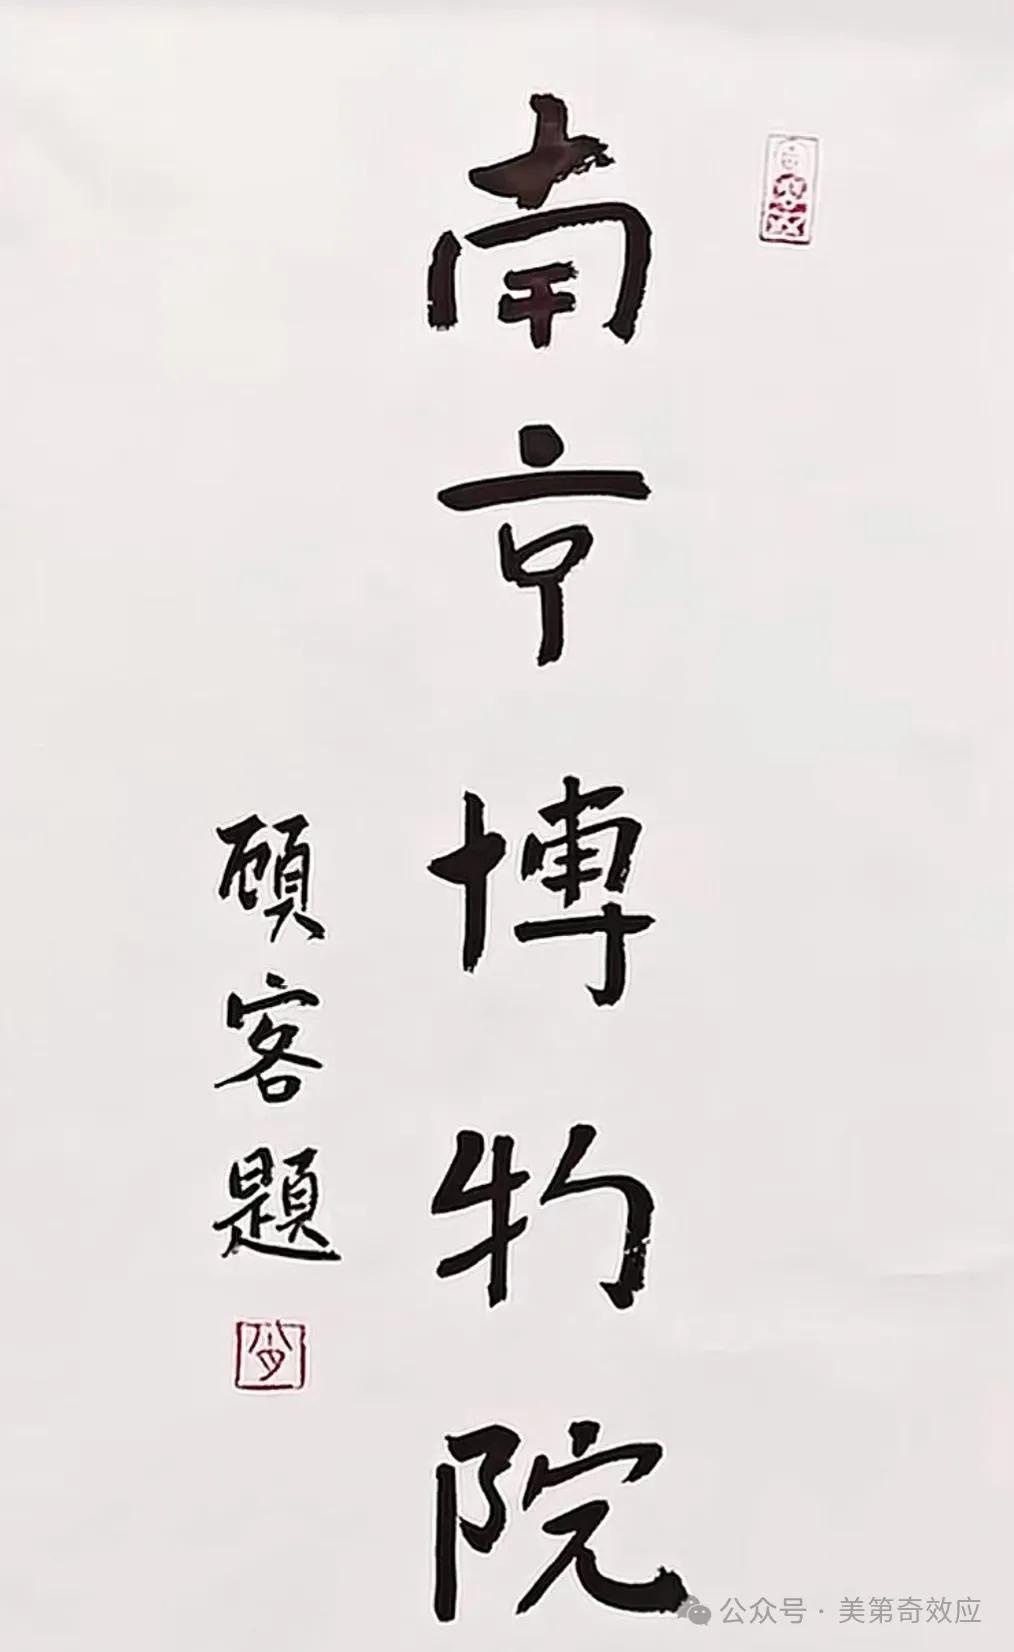 南京博物院
顧客題
公众号 · 美第奇效应